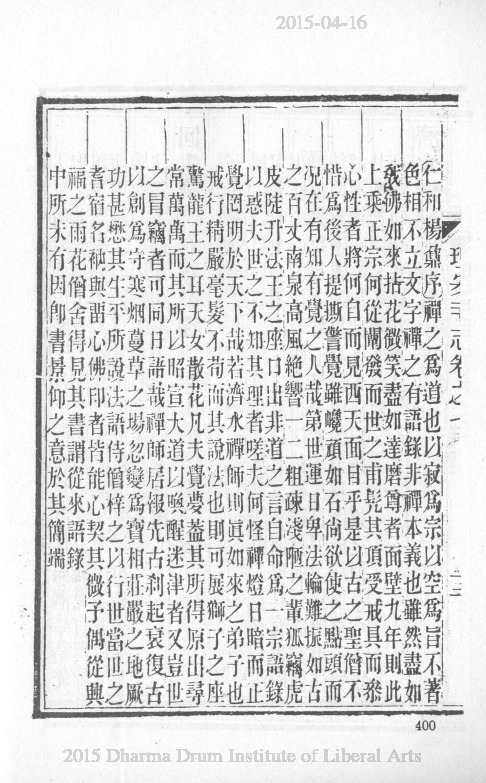 2015-04-16
仁和楊鼐序禪之爲道也以寂爲宗以空爲旨不著
色相不立文字禪之有語錄非禪本義也雖然盡如
我佛如來拈花微笑盡如達磨尊者面壁九年則此
上乘正宗何從闡發而世之甫髡其頂受戒具而叅
心性者將何自而見西天面目乎是以古之聖僧不
惜爲後人提撕警覺雖巉頑如石尚欲使之點頭而
况在有知有覺之人哉第世運日卑法輪難振如古
之百丈南泉高風絶響一二粗疎淺陋之輩狐竊虎
皮陡升法王之座口出非道之言自命爲一宗語錄
以惑夫世之不知其理者嗟夫何怪禪燈日暗而正
覺罔明於天下哉若濟水禪師則眞如來之弟子也
戒行精嚴毫髮不苟而其說法也則可展獅子之座
驚龍王之耳天女散花凡夫覺夢蓋其所得原出尋
常萬萬而其所以昭宣大道以喚醒迷津者又豈世
之冒竊者可同日語哉禪師居報先古刹起衰復古
以創爲守寒烟蔓草之場忽變爲寶相莊嚴之地厥
功甚懋其生平所說法語侍僧梓之以行世當世之
耆宿名秘與噐心佛印者皆能心契其微予偶從興
福之雨花僧舍得見其書謂從來語錄
中所未有因卽書景仰之意於其簡端
400
2015 Dharma Drum Institute of Liberal Arts